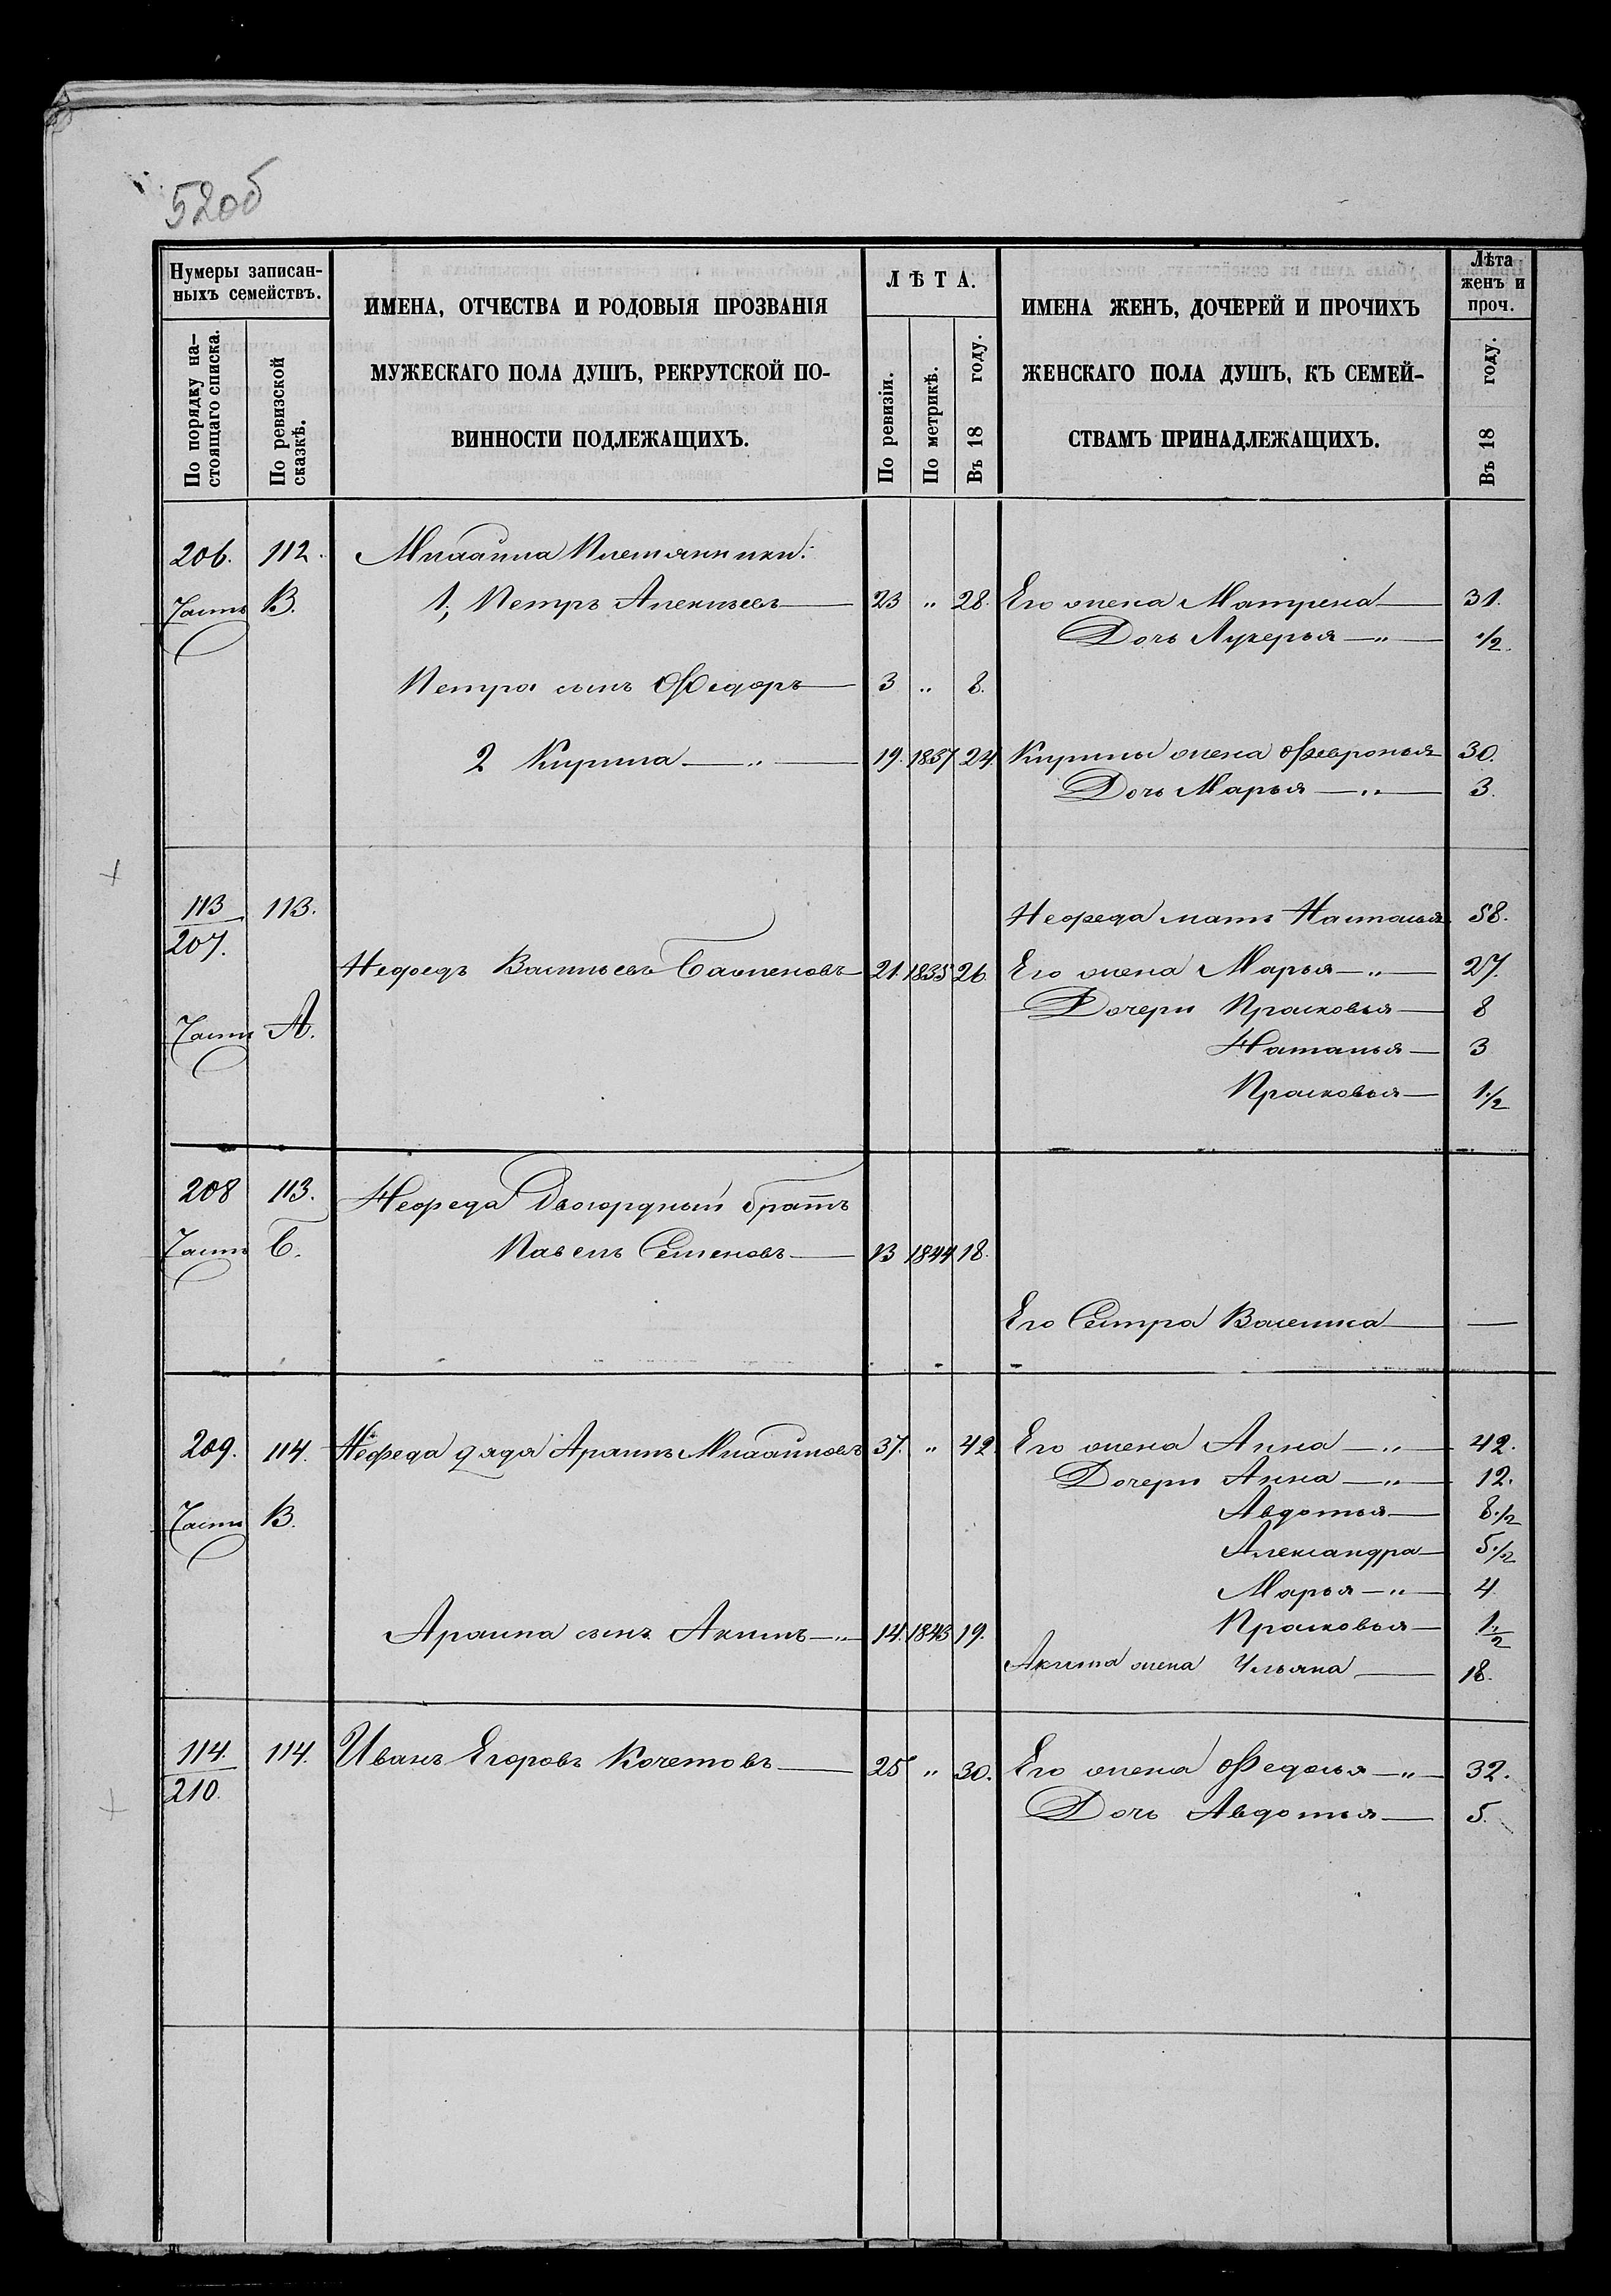 52об
Нумеры записан-
ныхъ семействъ.
По порядку на-
стоящаго списка.
По ревизской
сказкѣ.
ИМЕНА, ОТЧЕСТВА И РОДОВЫЯ ПРОЗВАНІЯ
МУЖЕСКАГО ПОЛА ДУШЪ, РЕКРУТСКОЙ ПО-
ВИННОСТИ ПОДЛЕЖАЩИХЪ.
ЛѢТА.
По ревизіи.
По метрикѣ.
Въ 18 году.
ИМЕНА ЖЕНЪ, ДОЧЕРЕЙ И ПРОЧИХЪ
ЖЕНСКАГО ПОЛА ДУШЪ, КЪ СЕМЕЙ-
СТВАМЪ ПРИНАДЛЕЖАЩИХЪ.
Лѣта
женъ и
проч.
Въ 18 году.
206. 112. Михаила Племянники:
Часть В. 1, Петръ Алексѣевъ — 23 „ 28. Его жена Матрена — 31.
Дочь Лукерья — „ — 1/2.
Петра сынъ Ѳедоръ — 3 „ 8.
2 Кирила — „ — 19. 1837 24. Кирилы жена Февронья 30.
Дочь Марья — „ — 3.
113 113. Нефеда мать Настасья 58.
207. Нефедъ Васильевъ 21. 1835 26. Его жена Марья — „ — 27.
Дочери Прасковья — 8
Часть А. Наталья — 3
Прасковья — 1 1/2
208 113. Нефеда Двоюрдный братъ
Часть Б. Павелъ Семеновъ — 13 1844 18.
Его Сестра Василиса — —
209. 114. Нефеда дядя Михайловъ 37. „ 42. Его жена Анна — „ — 42.
Дочери Анна — „ — 12.
Часть В. Авдотья — 8 1/2
Александра — 5 1/2
Марья — „ — 4
сынъ Акимъ — „ — 14. 1843 19. Прасковья — 1 1/2
Акима жена Ульяна — 18.
114. 114. Иванъ Егоровъ Кочетовъ — 25 „ 30. Его жена Ѳедосья — „ — 32.
210. Дочь Авдотья — 5.